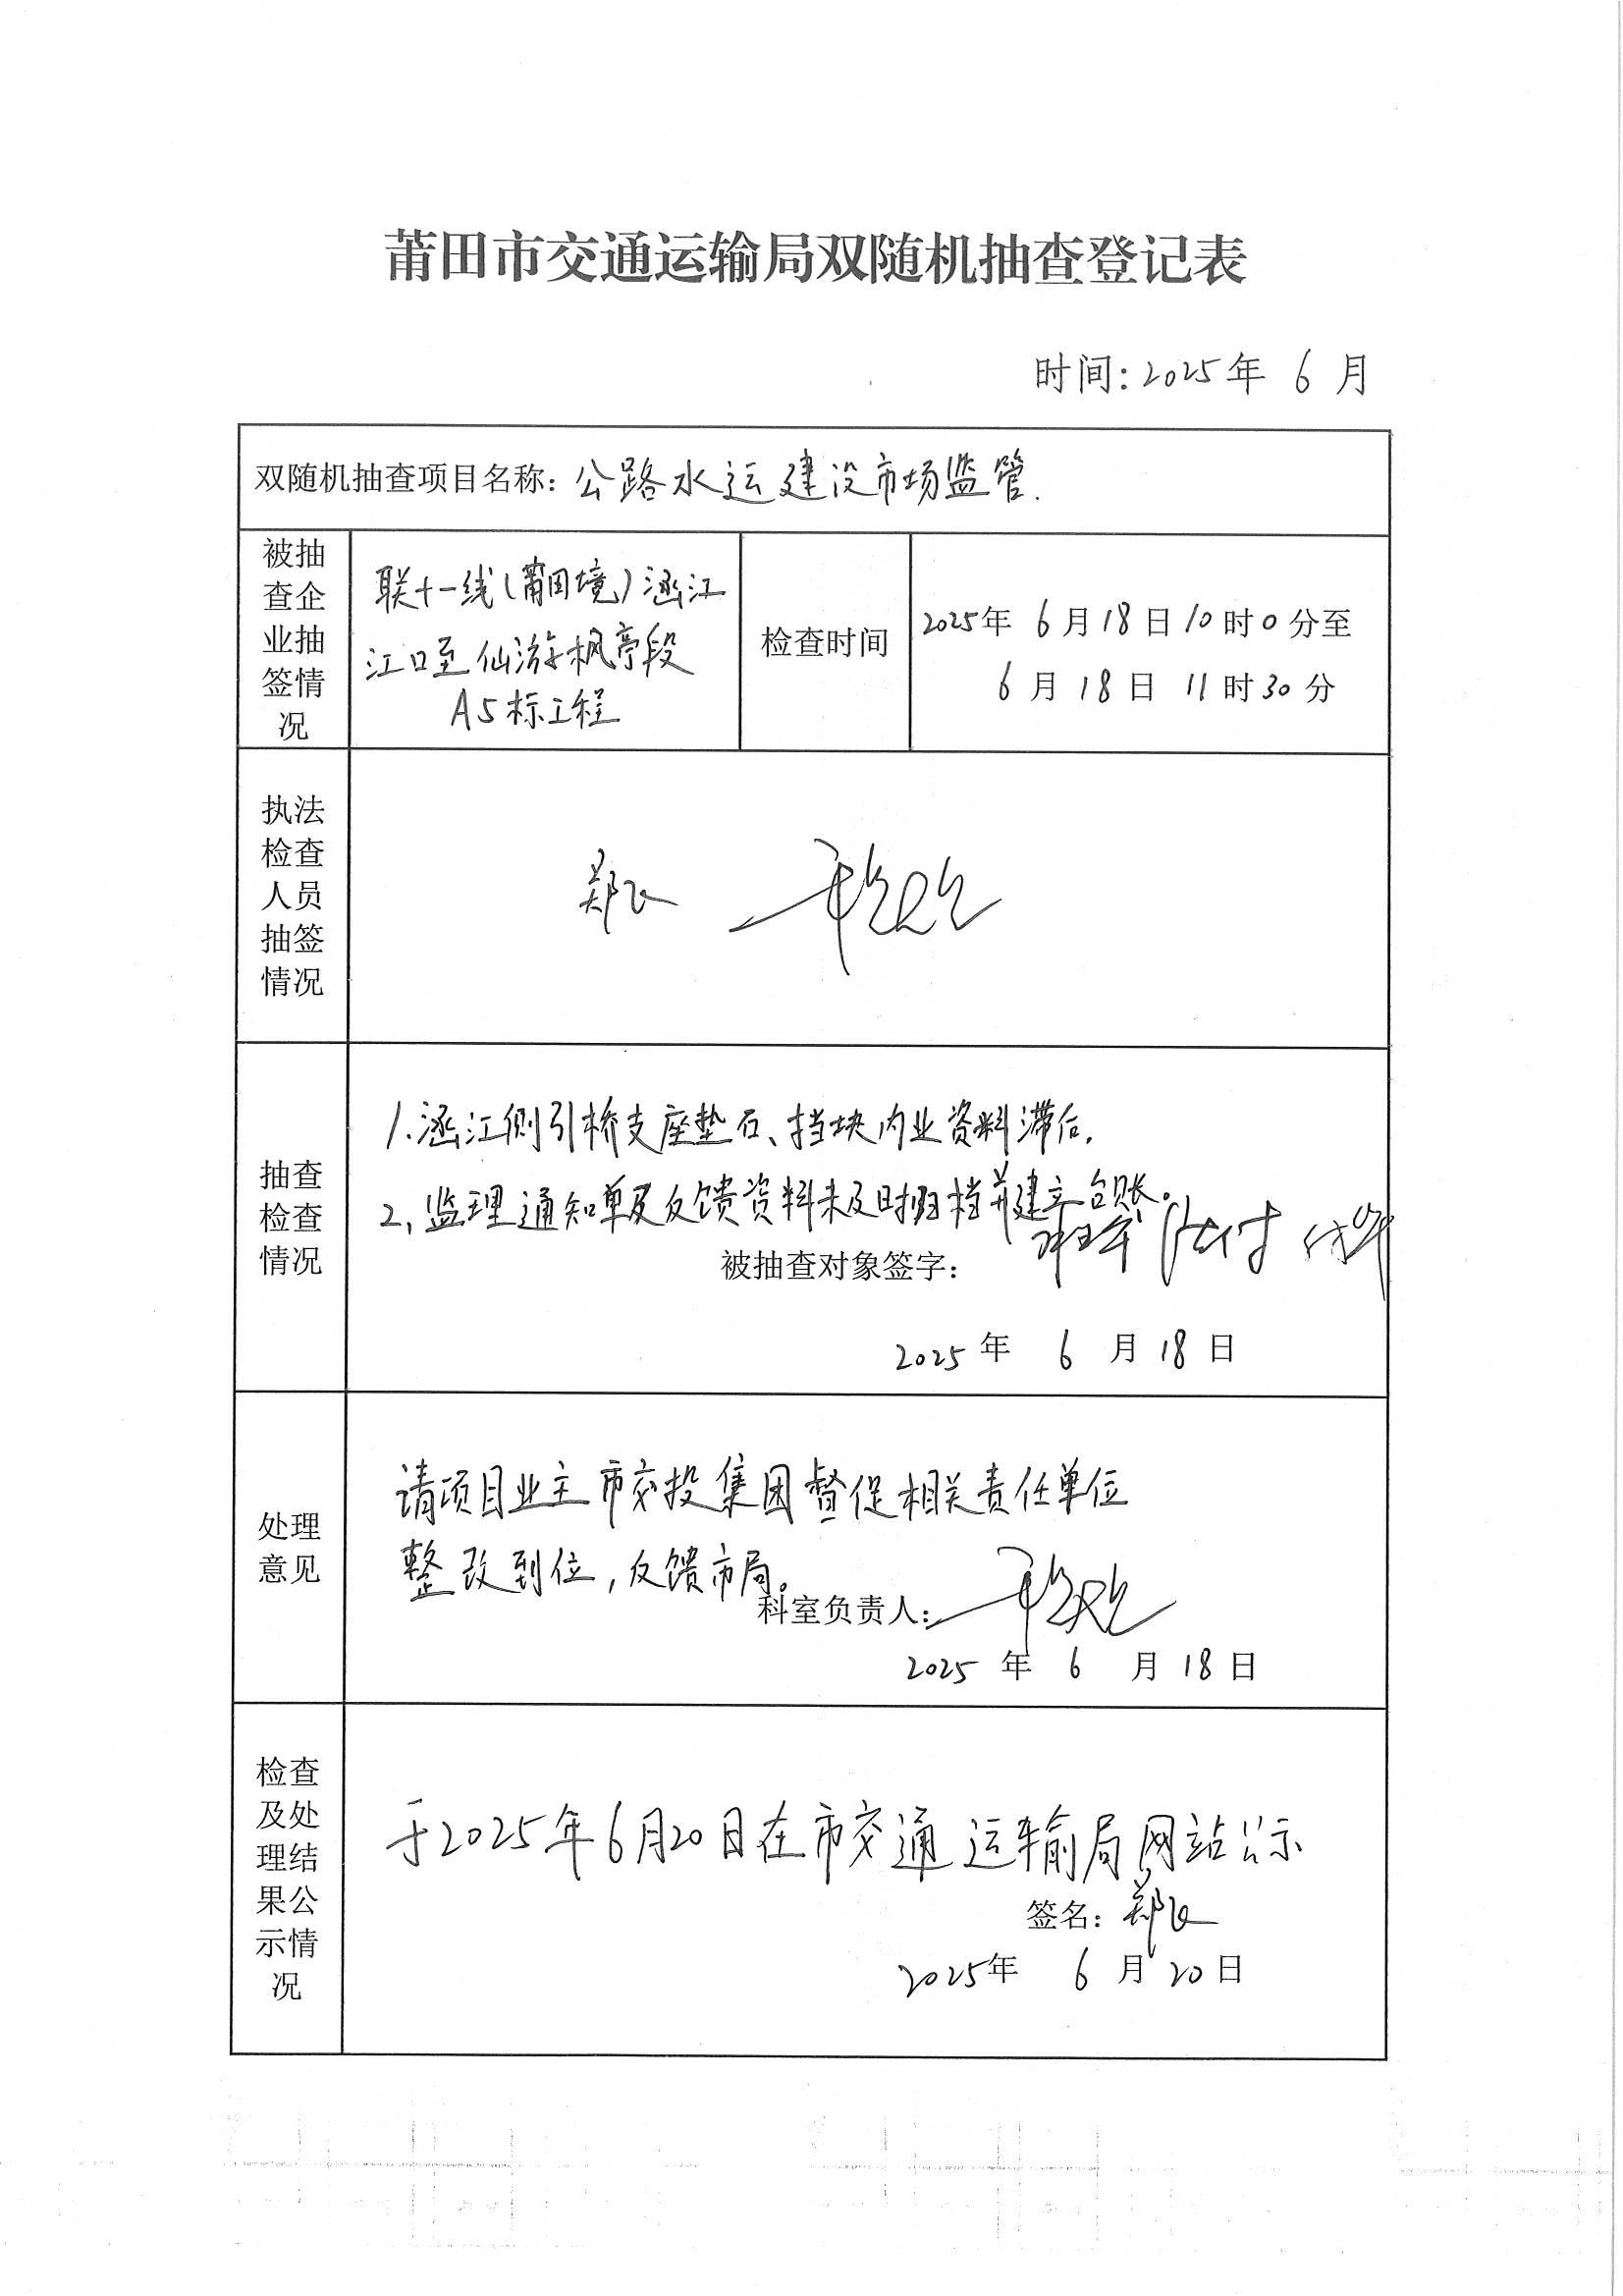 莆田市交通运输局双随机抽查登记表
时间：2025年 6 月
双随机抽查项目名称：公路水运建设市场监管.
被抽
查企
业抽
签情
况
联十一线(莆田境)涵江
江口至仙游枫亭段
A5标工程
检查时间
2025年 6月18日10时0分至
6月18日 11时30分
执法
检查
人员
抽签
情况
郑飞
抽查
检查
情况
1.涵江侧引桥支座垫石、挡块内业资料滞后.
2、监理通知单及反馈资料未及时归档并建立台账。
被抽查对象签字：
2025年 6 月18日
处理
意见
请项目业主市交投集团督促相关责任单位
整改到位，反馈市局。
科室负责人：
2025 年 6 月18日
检查
及处
理结
果公
示情
况
于2025年6月20日在市交通运输局网站公示
签名：郑飞
2025年 6 月20日